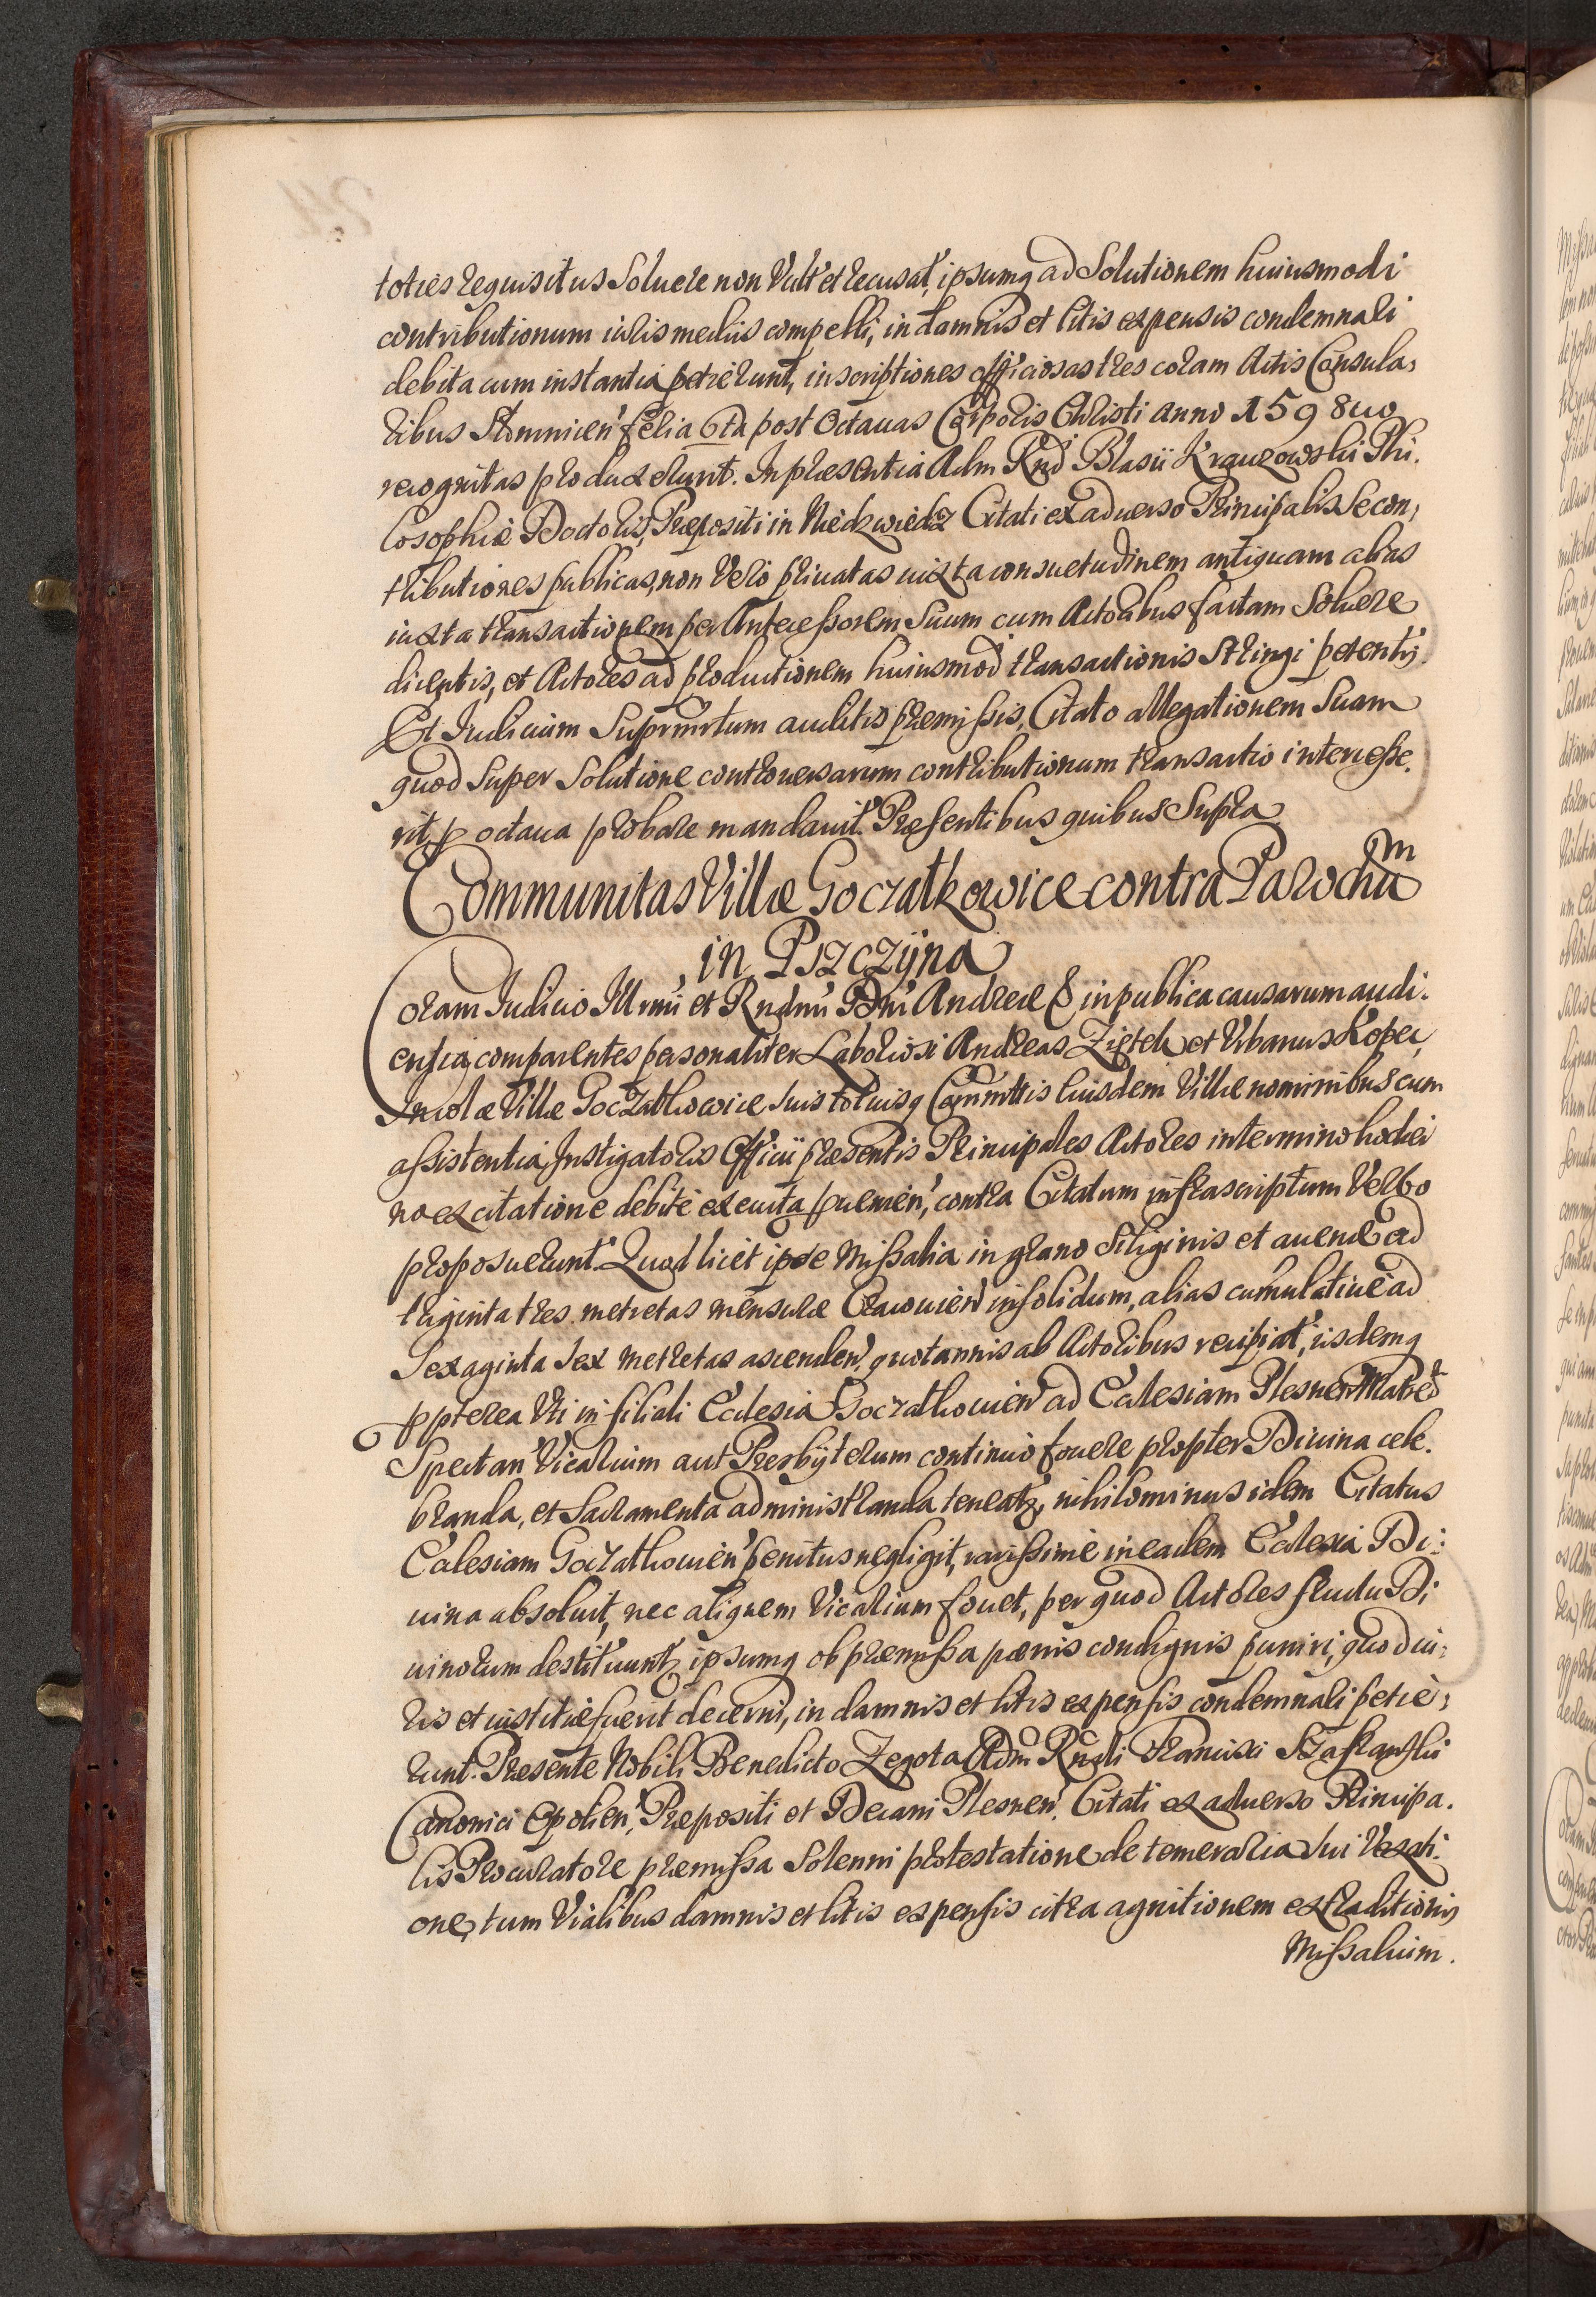 toties requisitus Soluere non Vult et recusat, ipsumq ad Solutionem huiusmodi
contributionum iuris mediis compelli, in damnis et litis expensis condemnari
debita cum instantia petierunt, inscriptiones officiosas tres coram Actis Consula,
ribus Slomnicen' feria 6ta post Octauas Corporis Christi anno 1598uo
recognitas produxerunt. In praesentia Adm Rnd Blasii Krauzowski Phi.
losophiae Doctoris, Praepositi in Niedzwiedz Citati ex aduerso Principalis Se con,
tributiones publicas, non Vero priuatas iuxta consuetudinem antiquam alias
iuxta transactionem per Antecessorem Suum cum Actoribus factam Soluere
dicentis, et Actores ad productionem huiusmodi transactionis Stringi petentis.
Et Iudicium Suprmrtum auditis praemissis, Citato allegationem Suam
quod Super Solutione controuersarum contributionum transactio intercesse.
rit, p octaua probare mandauit. Praesentibus quibus Supra
Communitas Villae Goczalkowice contra Parochum
in Pszczyna
Coram Iudicio Illrmi et Rndmi Dni Andreae & in publica causarum audi.
entia, comparentes personaliter Laboriosi Andreas Zietek et Vrbanus Kopec,
Incolae Villae Goczalkowice Suis totiusq Commttis eiusdem Villae nominibus cum
assistentia Instigatoris Officii praesentis Principales Actores in termino hodier
no ex citatione debite executa prouenien', contra Citatum infrascriptum Verbo
proposuerunt. Quod licet ipse Missalia in grano Siliginis et auenae ad
triginta tres metretas mensurae Cracouien' in solidum, alias cumulatiue ad
Sexaginta Sex metretas ascenden', quotannis ab Actoribus recipiat, iisdemq
ppterea Vti in filiali Ecclesia Goczalkouien' ad Ecclesiam Plesnen' Matrem
Spectan' Vicarium aut Presbyterum continuo fouere propter Diuina cele.
branda, et Sacramenta administranda teneatr, nihilominus idem Citatus
Ecclesiam Goczalkouien' penitus negligit, rarissime in eadem Ecclesia Di:
uina absoluit, nec aliquem Vicarium fouet, per quod Actores fructu Di
uinorum destituuntr, ipsumq ob praemissa paenis condignis puniri, quod iu:
ris et iustitiae fuerit decerni, in damnis et litis expensis condemnari petie:
runt. Praesente Nobili Benedicto Zegota Adm Rndi Francisci Szafranski
Canonici Opolien', Praepositi et Decani Plesnen'. Citati ex aduerso Principa.
lis Procuratore praemissa Solenni protestatione de temeraria Sui Vexati.
one, tum Vialibus damnis et litis expensis citra agnitionem extraditionis
Missalium.